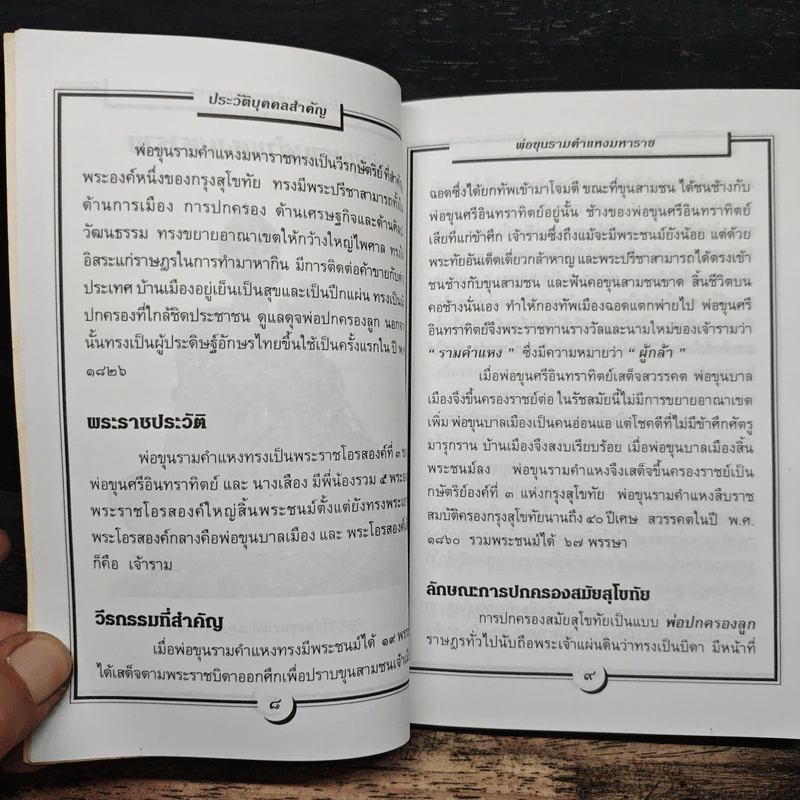 ประวัติบุคคลสำคัญ
พ่อขุนรามคำแหงมหาราชทรงเป็นวีรกษัตริย์ที่สำคัญ
พระองค์หนึ่งของกรุงสุโขทัย ทรงมีพระปรีชาสามารถทั้ง
ด้านการเมือง การปกครอง ด้านเศรษฐกิจและด้าน
วัฒนธรรม ทรงขยายอาณาเขตให้กว้างใหญ่ไพศาล
อิสระแก่ราษฎรในการทำมาหากิน มีการติดต่อค้าขายกับ
ประเทศ บ้านเมืองอยู่เย็นเป็นสุขและเป็นปึกแผ่น ทรงเป็น
ปกครองที่ใกล้ชิดประชาชน ดูแลดุจพ่อปกครองลูก
นั้นทรงเป็นผู้ประดิษฐ์อักษรไทยขึ้นใช้เป็นครั้งแรกใน ปี
๑๘๒๖
พระราชประวัติ
พ่อขุนรามคำแหงทรงเป็นพระราชโอรสองค์ที่ ๓
พ่อขุนศรีอินทราทิตย์ และ นางเสือง มีพี่น้องรวม ๕
พระราชโอรสองค์ใหญ่สิ้นพระชนม์ตั้งแต่ยังทรงพระ
พระโอรสองค์กลางคือพ่อขุนบาลเมือง และ พระโอรสองค์
ก็คือ เจ้าราม
วีรกรรมที่สำคัญ
เมื่อพ่อขุนรามคำแหงทรงมีพระชนม์ได้ ๑๙
ได้เสด็จตามพระราชบิดาออกศึกเพื่อปราบขุนสามชน
๘
พ่อขุนรามคำแหงมหาราช
ฉอดซึ่งได้ยกทัพเข้ามาโจมตี ขณะที่ขุนสามชน ได้ชนช้างกับ
พ่อขุนศรีอินทราทิตย์อยู่นั้น ช้างของพ่อขุนศรีอินทราทิตย์
เสียทีแก่ข้าศึก เจ้ารามซึ่งถึงแม้จะมีพระชนม์ยังน้อย แต่ด้วย
พระทัยอันเด็ดเดี่ยวกล้าหาญ และพระปรีชาสามารถได้ตรงเข้า
ชนช้างกับขุนสามชน และฟันคอขุนสามชนขาด สิ้นชีวิตบน
คอช้างนั่นเอง ทำให้กองทัพเมืองฉอดแตกพ่ายไป พ่อขุนศรี
อินทราทิตย์จึงพระราชทานรางวัลและนามใหม่ของเจ้ารามว่า
“ รามคำแหง ” ซึ่งมีความหมายว่า “ ผู้กล้า ”
เมื่อพ่อขุนศรีอินทราทิตย์เสด็จสวรรคต พ่อขุนบาล
เมืองจึงขึ้นครองราชย์ต่อ ในรัชสมัยนี้ไม่มีการขยายอาณาเขต
เพิ่ม พ่อขุนบาลเมืองเป็นคนอ่อนแอ แต่โชคดีที่ไม่มีข้าศึกศัตรู
มารุกราน บ้านเมืองจึงสงบเรียบร้อย เมื่อพ่อขุนบาลเมืองสิ้น
พระชนม์ลง พ่อขุนรามคำแหงจึงเสด็จขึ้นครองราชย์เป็น
กษัตริย์องค์ที่ ๓ แห่งกรุงสุโขทัย พ่อขุนรามคำแหงสืบราช
สมบัติครองกรุงสุโขทัยนานถึง ๔๐ ปีเศษ สวรรคตในปี พ.ศ.
๑๘๖๐ รวมพระชนม์ได้ ๖๗ พรรษา
ลักษณะการปกครองสมัยสุโขทัย
การปกครองสมัยสุโขทัยเป็นแบบ พ่อปกครองลูก
ราษฎรทั่วไปนับถือพระเจ้าแผ่นดินว่าทรงเป็นบิดา มีหน้าที่
๙